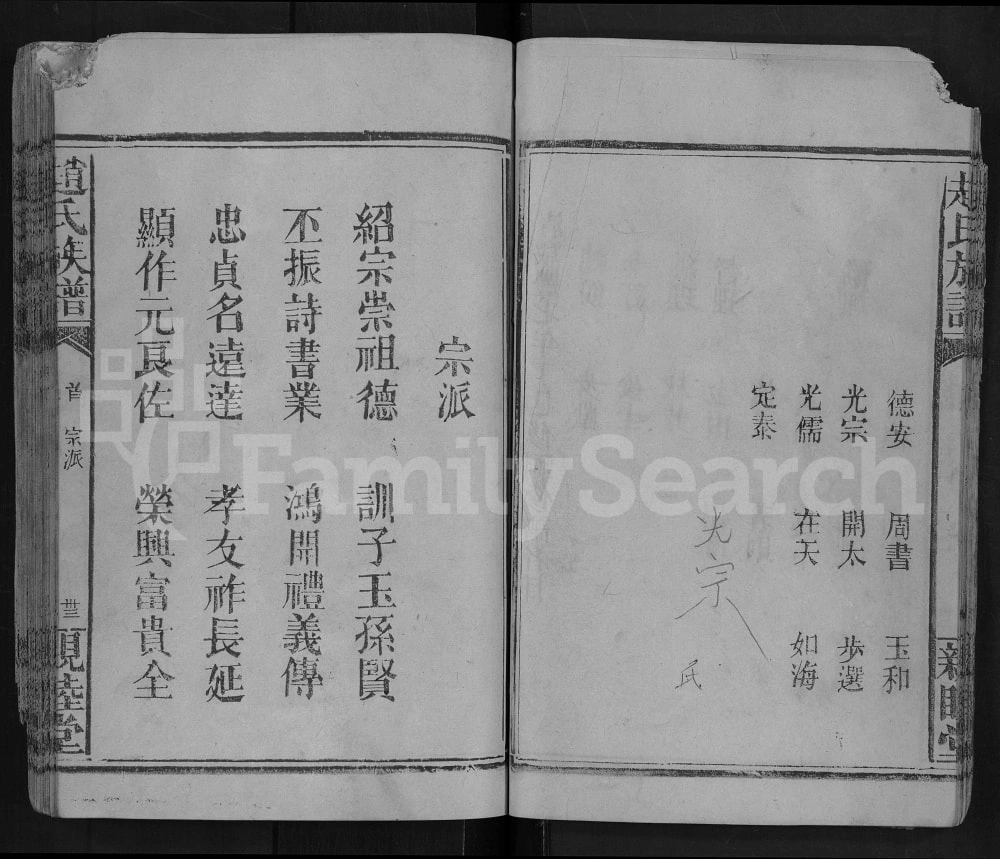 趙氏族譜
德安 周書 玉和
光宗 開太 步選
光儒 在天 如海
定泰
光宗
氏
宗派
紹宗崇祖德 訓子玉孫賢
丕振詩書業 鴻開禮義傳
忠貞名遠達 孝友祚長延
顯作元良佐 榮興富貴全
趙氏族譜
首 宗派
卌三
親睦堂
FamilySearch